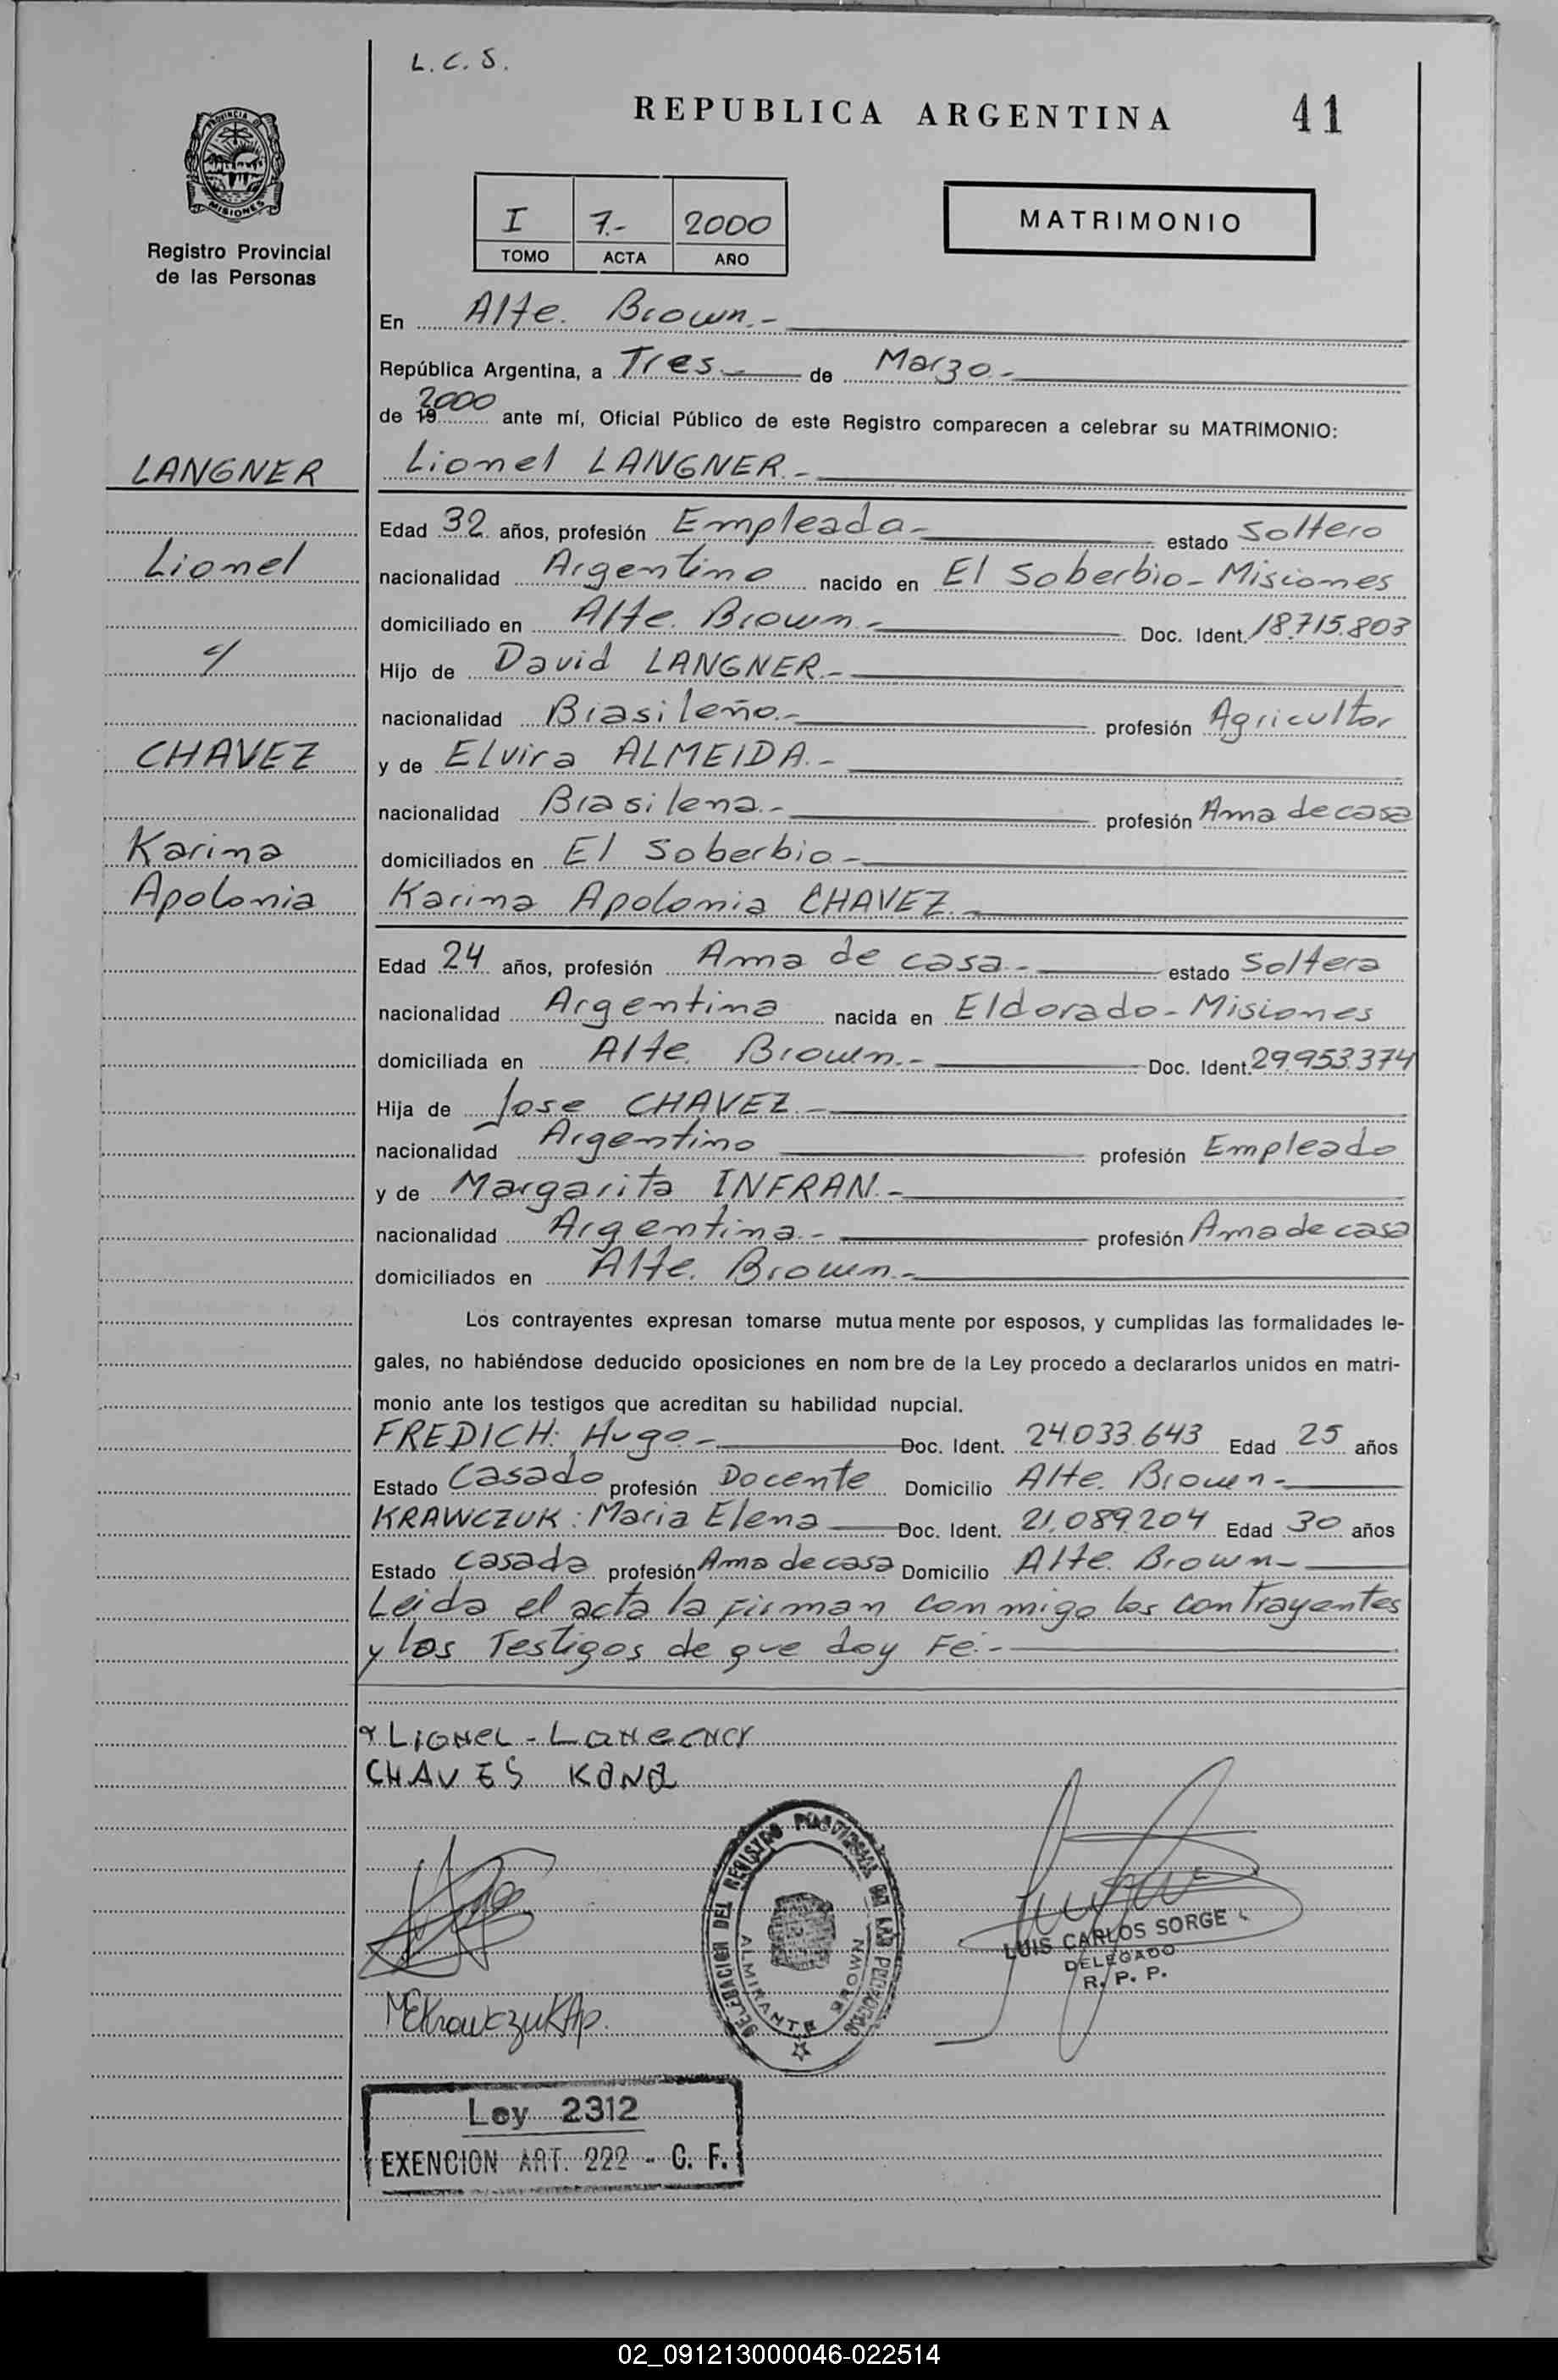 L. C. S.
REPUBLICA ARGENTINA 41
PROVINCIA DE
MISIONES
Registro Provincial
de las Personas
I 7.- 2000
TOMO ACTA AÑO
MATRIMONIO
En Alte. Brown.-
República Argentina, a Tres.- de Marzo.-
de 19 2000 ante mí, Oficial Público de este Registro comparecen a celebrar su MATRIMONIO:
LANGNER
Lionel LANGNER.-
Edad 32 años, profesión Empleada- estado Soltero
Lionel
nacionalidad Argentino nacido en El Soberbio- Misiones
domiciliado en Alte. Brown.- Doc. Ident. 18.715.803
c/
Hijo de David LANGNER.-
nacionalidad Brasileño.- profesión Agricultor
CHAVEZ
y de Elvira ALMEIDA.-
nacionalidad Brasilena.- profesión Ama de casa
Karina
domiciliados en El Soberbio-
Apolonia
Karina Apolonia CHAVEZ.-
Edad 24 años, profesión Ama de casa.- estado Soltera
nacionalidad Argentina nacida en Eldorado- Misiones
domiciliada en Alte. Brown.- Doc. Ident. 29.953.374
Hija de Jose CHAVEZ.-
nacionalidad Argentino profesión Empleado
y de Margarita INFRAN.-
nacionalidad Argentina.- profesión Ama de casa
domiciliados en Alte. Brown.-
Los contrayentes expresan tomarse mutua mente por esposos, y cumplidas las formalidades le-
gales, no habiéndose deducido oposiciones en nom bre de la Ley procedo a declararlos unidos en matri-
monio ante los testigos que acreditan su habilidad nupcial.
FREDICH: Hugo.- Doc. Ident. 24.033.643 Edad 25 años
Estado Casado profesión Docente Domicilio Alte. Brown.-
KRAWCZUK: Maria Elena Doc. Ident. 21.089.204 Edad 30 años
Estado Casada profesión Ama de casa Domicilio Alte. Brown-
Leida el acta la firman conmigo los contrayentes
y los Testigos de que doy Fe.-
LIONEL -
CHAVES
DELEGACION DEL REGISTRO PROVINCIAL DE LAS PERSONAS
ALMIRANTE BROWN
LUIS CARLOS SORGE
DELEGADO
R. P. P.
MEKrawczuk
Ley 2312
EXENCION ART. 222 - C. F.
02_091213000046-022514